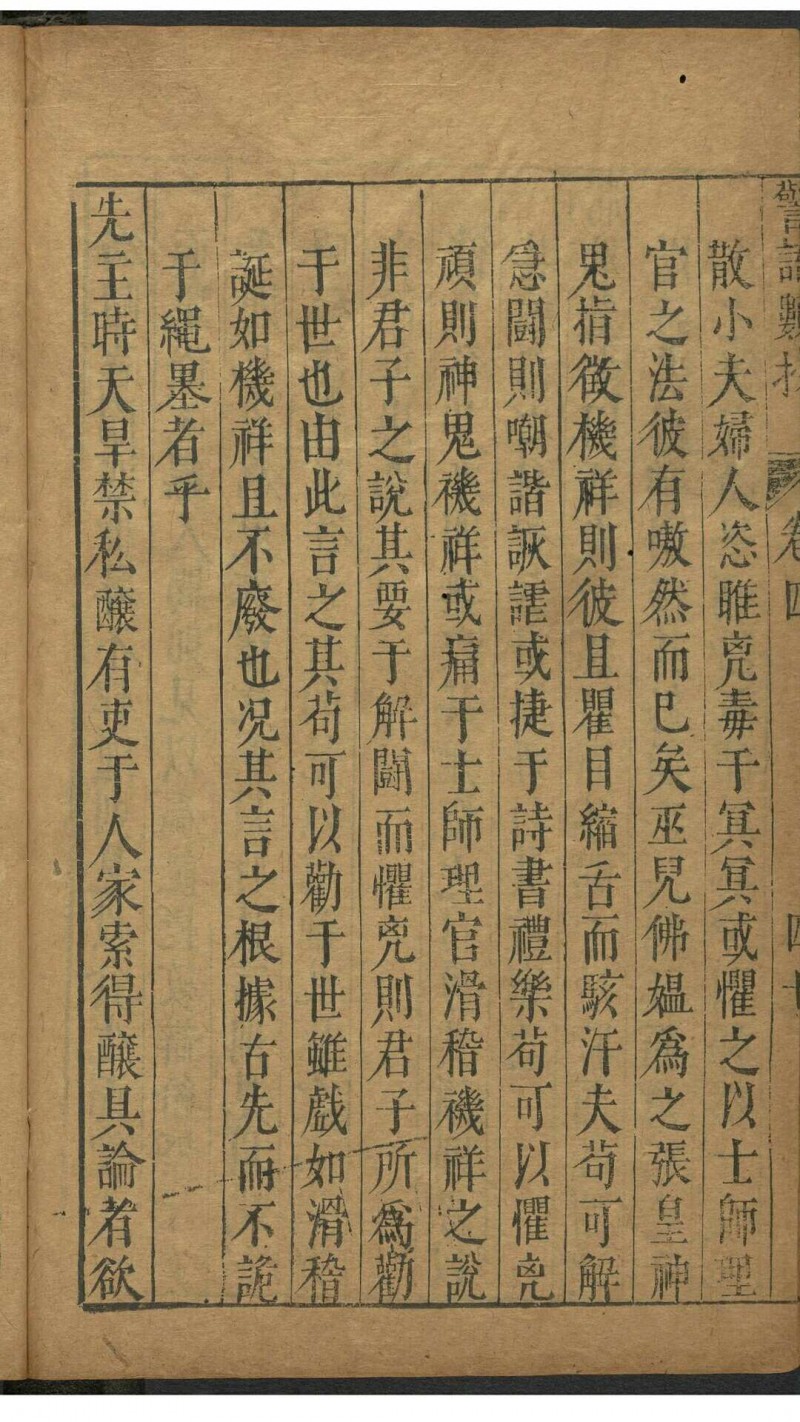 警語類抄 卷四 四十
散小夫婦人恣睢兇毒于冥冥或懼之以士師理
官之法彼有嗷然而已矣巫兒佛媼爲之張皇神
鬼指徵機祥則彼且瞿目縮舌而駭汗夫苟可解
急鬪則嘲諧詼謔或捷于詩書禮樂苟可以懼兇
頑則神鬼禨祥或痛于士師理官滑稽禨祥之說
非君子之說其要于解鬪而懼兇則君子所爲勸
于世也由此言之其苟可以勸于世雖戲如滑稽
誕如機祥且不廢也况其言之根據右先而不詭
于繩墨者乎
先主時天旱禁私釀有吏于人家索得釀具論者欲